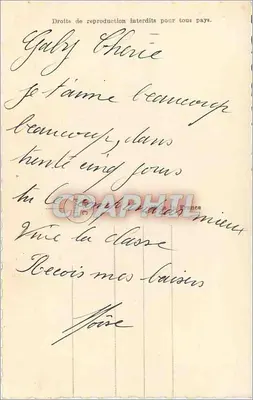 Droits de reproduction interdits pour tous pays.
Gaby Cherie
je t'aime beaucoup
beaucoup, dans
trente cinq jours
tu le comprendras mieux
CPAPHIL
Vive la classe
Recois mes baisers